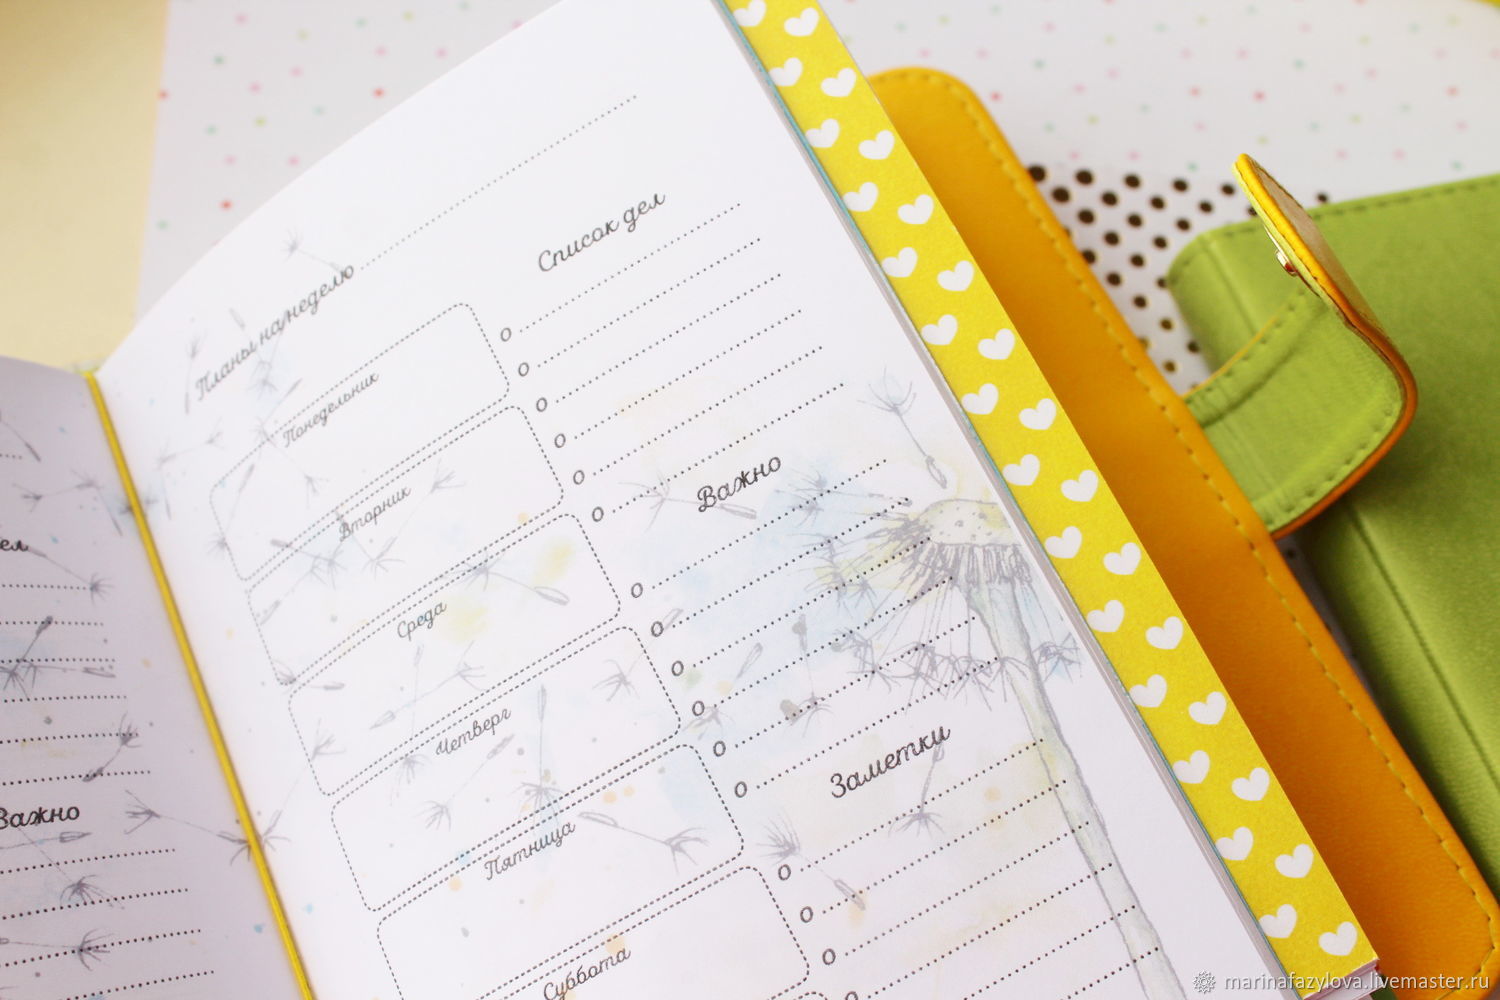 ел
Важно
Планы на неделю
Понедельник
Вторник
Среда
Четверг
Пятница
Суббота
Список дел
Важно
Заметки
marinafazylova.livemaster.ru